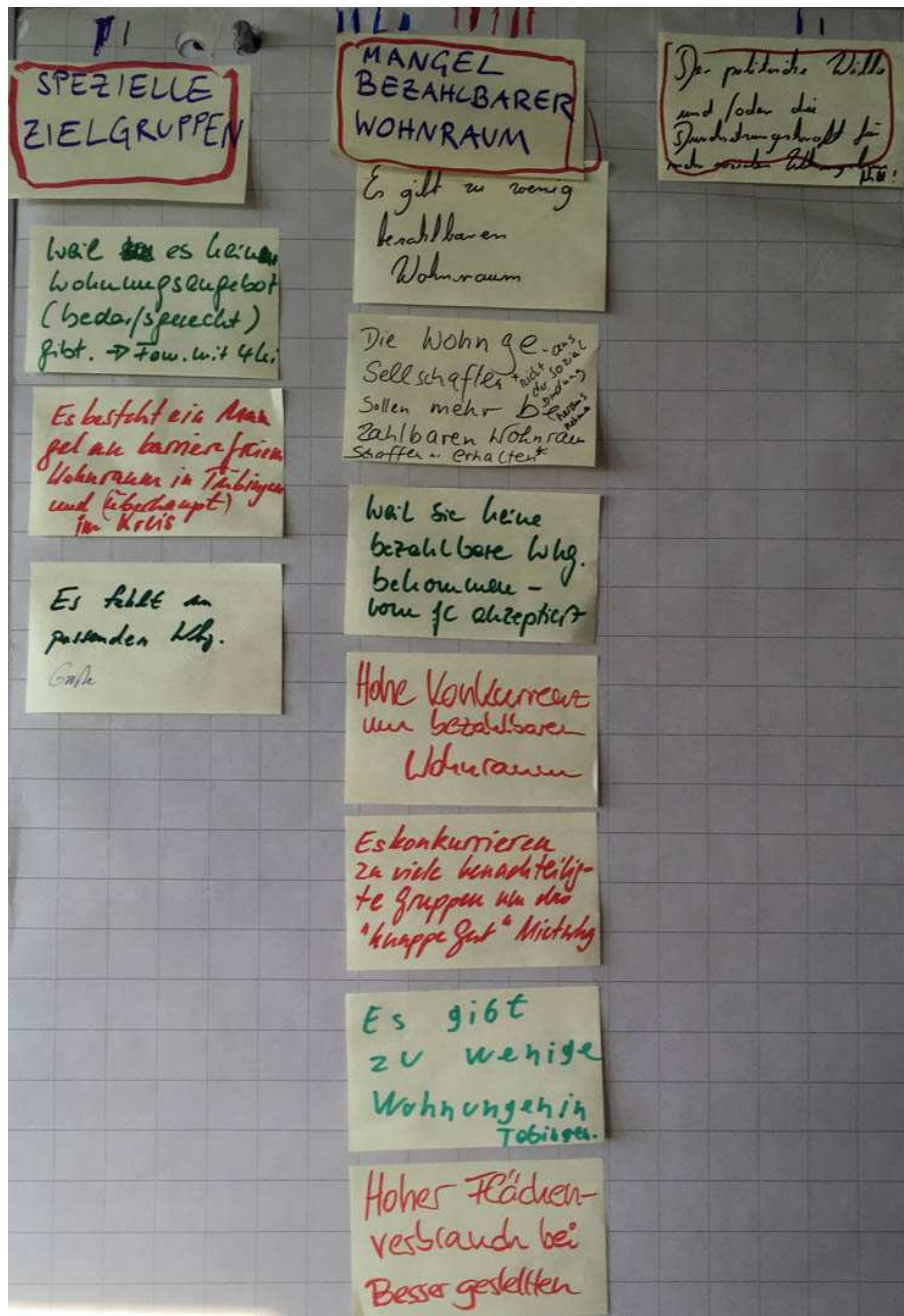 SPEZIELLE
ZIELGRUPPEN
weil es keine
Wohnungsangebot
(bedarfsgerecht)
gibt. → Fam. mit 4 Ki
Es besteht ein Man
gel an barrierefreiem
Wohnraum in Tübingen
und (überhaupt)
im Kreis
Es fehlt an
passenden Whg.
Größe
MANGEL
BEZAHLBARER
WOHNRAUM
Es gibt zu wenig
bezahlbaren
Wohnraum
Die Wohnge-
sellschaften
sollen mehr be
zahlbaren Wohnraum
schaffen u. erhalten*
* nicht aus
der Sozial
bindung
heraus
nehmen
Weil sie keine
bezahlbare Whg.
bekommen -
vom JC akzeptiert
Hohe Konkurrenz
um bezahlbaren
Wohnraum
Es konkurrieren
zu viele benachteilig-
te Gruppen um das
"knappe Gut" Mietwhg
Es gibt
zu wenige
Wohnungen in
Tübingen.
Hoher Flächen-
verbrauch bei
Besser gestellten
Der politische Wille
und/oder die
Durchsetzungskraft für
mehr sozialen
fehlt!